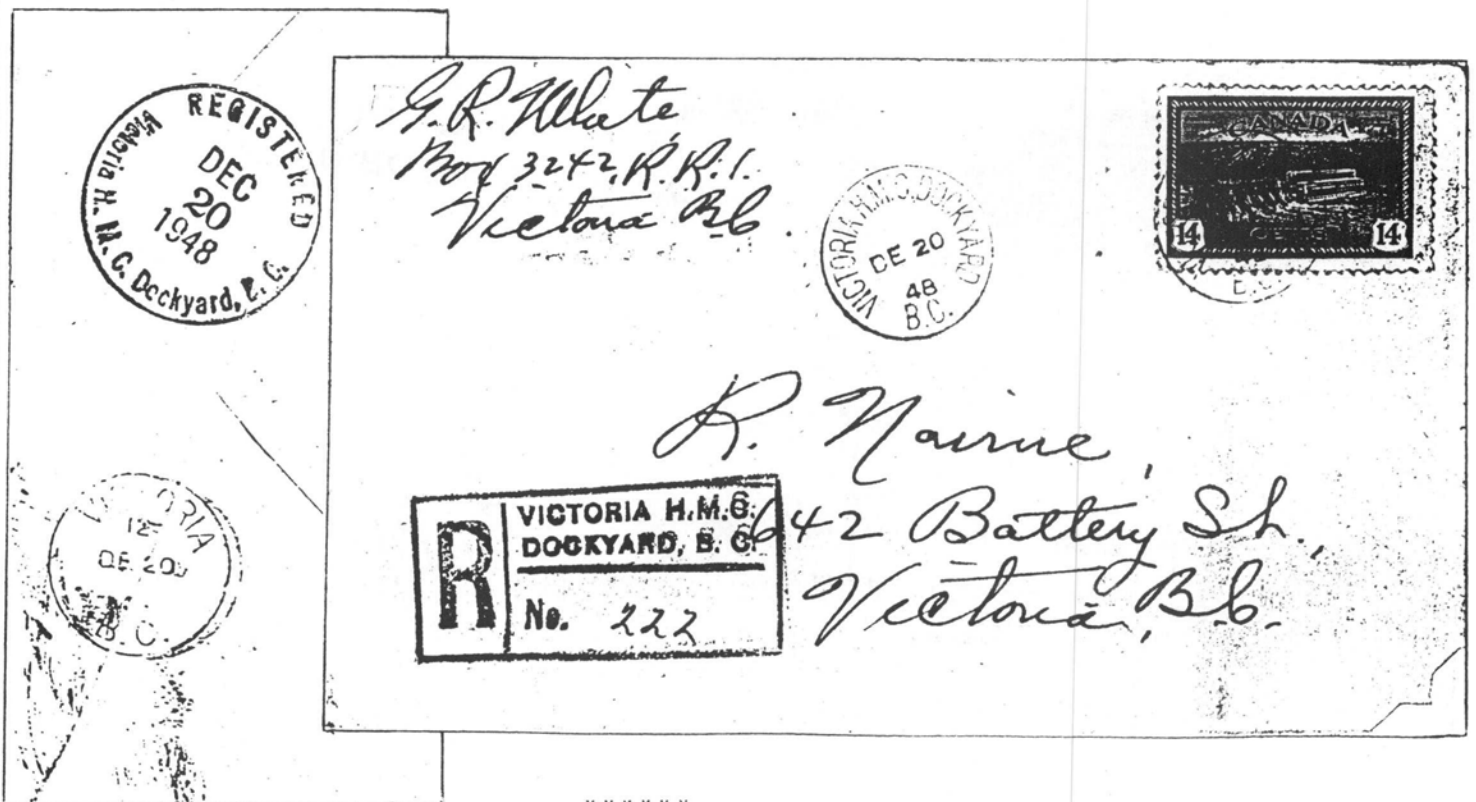 REGISTERED
DEC
20
1948
Victoria H. M. C. Dockyard, B. C.
VICTORIA
12
DE 20
B.C.
G. R. White
Box 3242, R.R.1.
Victoria B.C.
VICTORIA H.M.C. DOCKYARD
DE 20
48
B.C.
CANADA
14 CENTS 14
B.C.
R. Nairne,
642 Battery St.,
Victoria, B.C.
R
VICTORIA H.M.C.
DOCKYARD, B. C.
No. 222